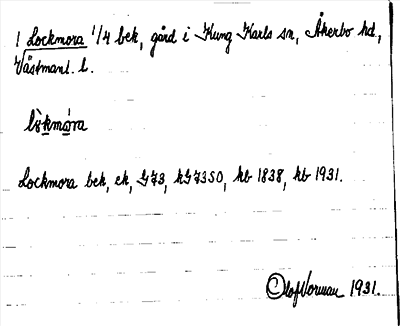 1 Lockmora 1/4 bek, gård i Kung Karls sn, Åkerbo hd,
Västmanl. l.
lòkmó̱ra
Lockmora bek, ek, G73, kG73SO, hb 1838, hb 1931.
Olof Norman 1931.